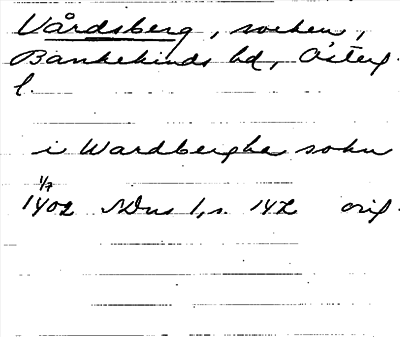 Vårdsberg, socken,
Bankekinds hd, Österg.
l.
i Wardberghe sokn
1/7
1402 SDns 1, s. 142 orig.